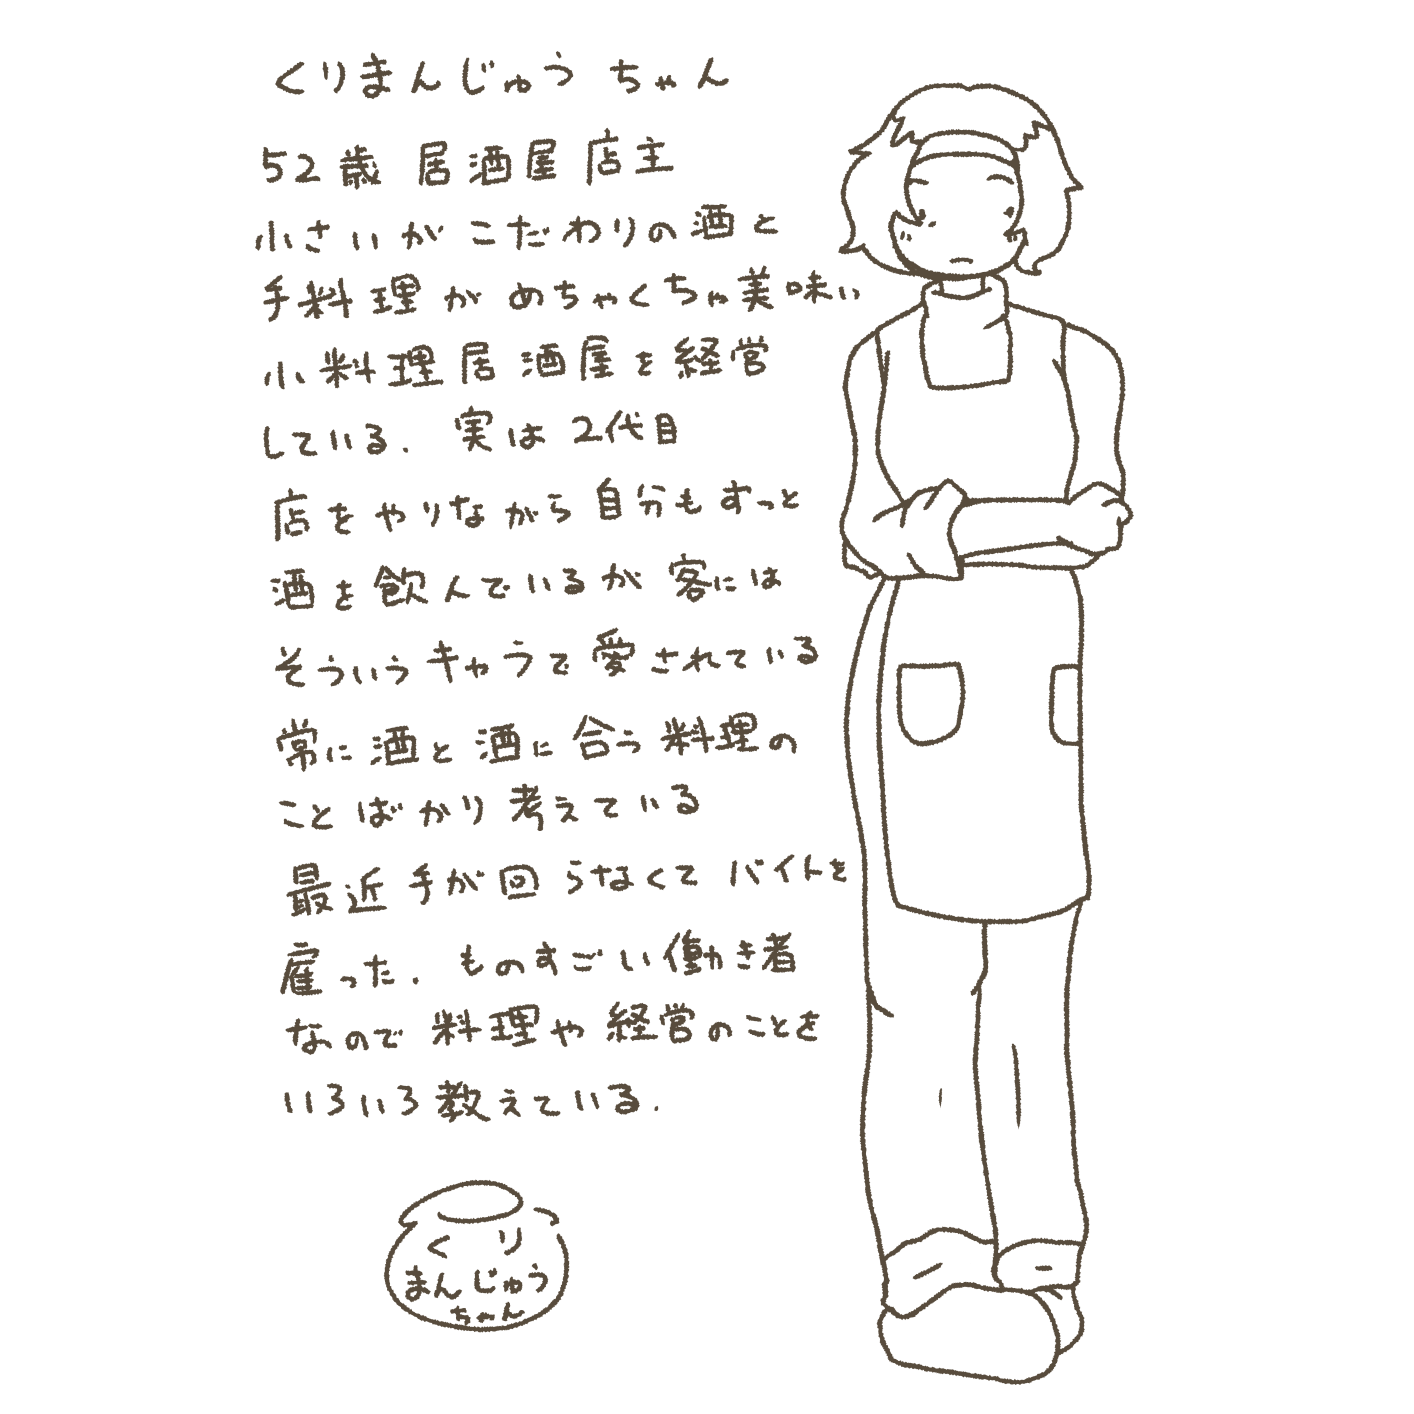 くりまんじゅうちゃん
52歳 居酒屋店主
小さいがこだわりの酒と
手料理がめちゃくちゃ美味い
小料理居酒屋を経営
している. 実は2代目
店をやりながら自分もずっと
酒を飲んでいるが客には
そういうキャラで愛されている
常に酒と酒に合う料理の
ことばかり考えている
最近手が回らなくてバイトを
雇った. ものすごい働き者
なので料理や経営のことを
いろいろ教えている.
くり
まんじゅう
ちゃん